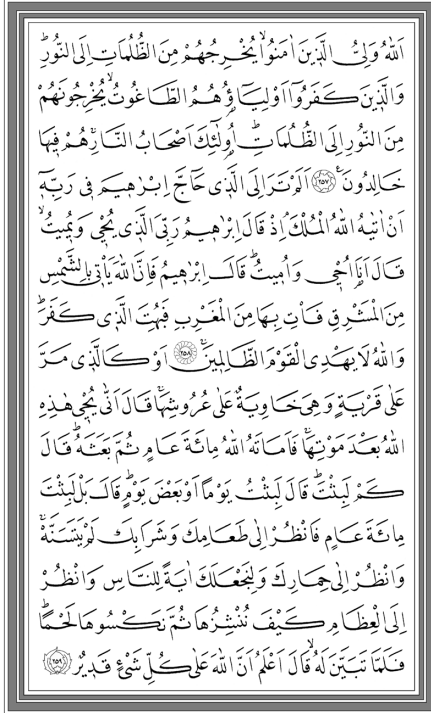 اَللّٰهُ وَلِيُّ الَّذِينَ اٰمَنُواۙ يُخْرِجُهُمْ مِنَ الظُّلُمَاتِ اِلَى النُّورِۜ
وَالَّذِينَ كَفَرُٓوا اَوْلِيَٓاؤُ۬هُمُ الطَّاغُوتُۙ يُخْرِجُونَهُمْ
مِنَ النُّورِ اِلَى الظُّلُمَاتِۜ اُو۬لٰٓئِكَ اَصْحَابُ النَّارِۚ هُمْ فِيهَا
خَالِدُونَ۟ ﴿٢٥٧﴾ اَلَمْ تَرَ اِلَى الَّذِي حَٓاجَّ اِبْرٰهِيمَ فِي رَبِّه۪ٓ
اَنْ اٰتٰيهُ اللّٰهُ الْمُلْكَۢ اِذْ قَالَ اِبْرٰهِيمُ رَبِّيَ الَّذِي يُحْيِ وَيُمِيتُۙ
قَالَ اَنَا۬ اُحْيِ وَاُمِيتُۜ قَالَ اِبْرٰهِيمُ فَاِنَّ اللّٰهَ يَأْتِي بِالشَّمْسِ
مِنَ الْمَشْرِقِ فَأْتِ بِهَا مِنَ الْمَغْرِبِ فَبُهِتَ الَّذِي كَفَرَۜ
وَاللّٰهُ لَا يَهْدِي الْقَوْمَ الظَّالِمِينَۚ ﴿٢٥٨﴾ اَوْ كَالَّذِي مَرَّ
عَلٰى قَرْيَةٍ وَهِيَ خَاوِيَةٌ عَلٰى عُرُوشِهَاۚ قَالَ اَنّٰى يُحْيِ هٰذِهِ
اللّٰهُ بَعْدَ مَوْتِهَاۚ فَاَمَاتَهُ اللّٰهُ مِائَةَ عَامٍ ثُمَّ بَعَثَهُۜ قَالَ
كَمْ لَبِثْتَۜ قَالَ لَبِثْتُ يَوْمًا اَوْ بَعْضَ يَوْمٍۜ قَالَ بَلْ لَبِثْتَ
مِائَةَ عَامٍ فَانْظُرْ اِلٰى طَعَامِكَ وَشَرَابِكَ لَمْ يَتَسَنَّهْۚ
وَانْظُرْ اِلٰى حِمَارِكَ وَلِنَجْعَلَكَ اٰيَةً لِلنَّاسِ وَانْظُرْ
اِلَى الْعِظَامِ كَيْفَ نُنْشِزُهَا ثُمَّ نَكْسُوهَا لَحْمًاۜ
فَلَمَّا تَبَيَّنَ لَهُۙ قَالَ اَعْلَمُ اَنَّ اللّٰهَ عَلٰى كُلِّ شَيْءٍ قَدِيرٌ ﴿٢٥٩﴾